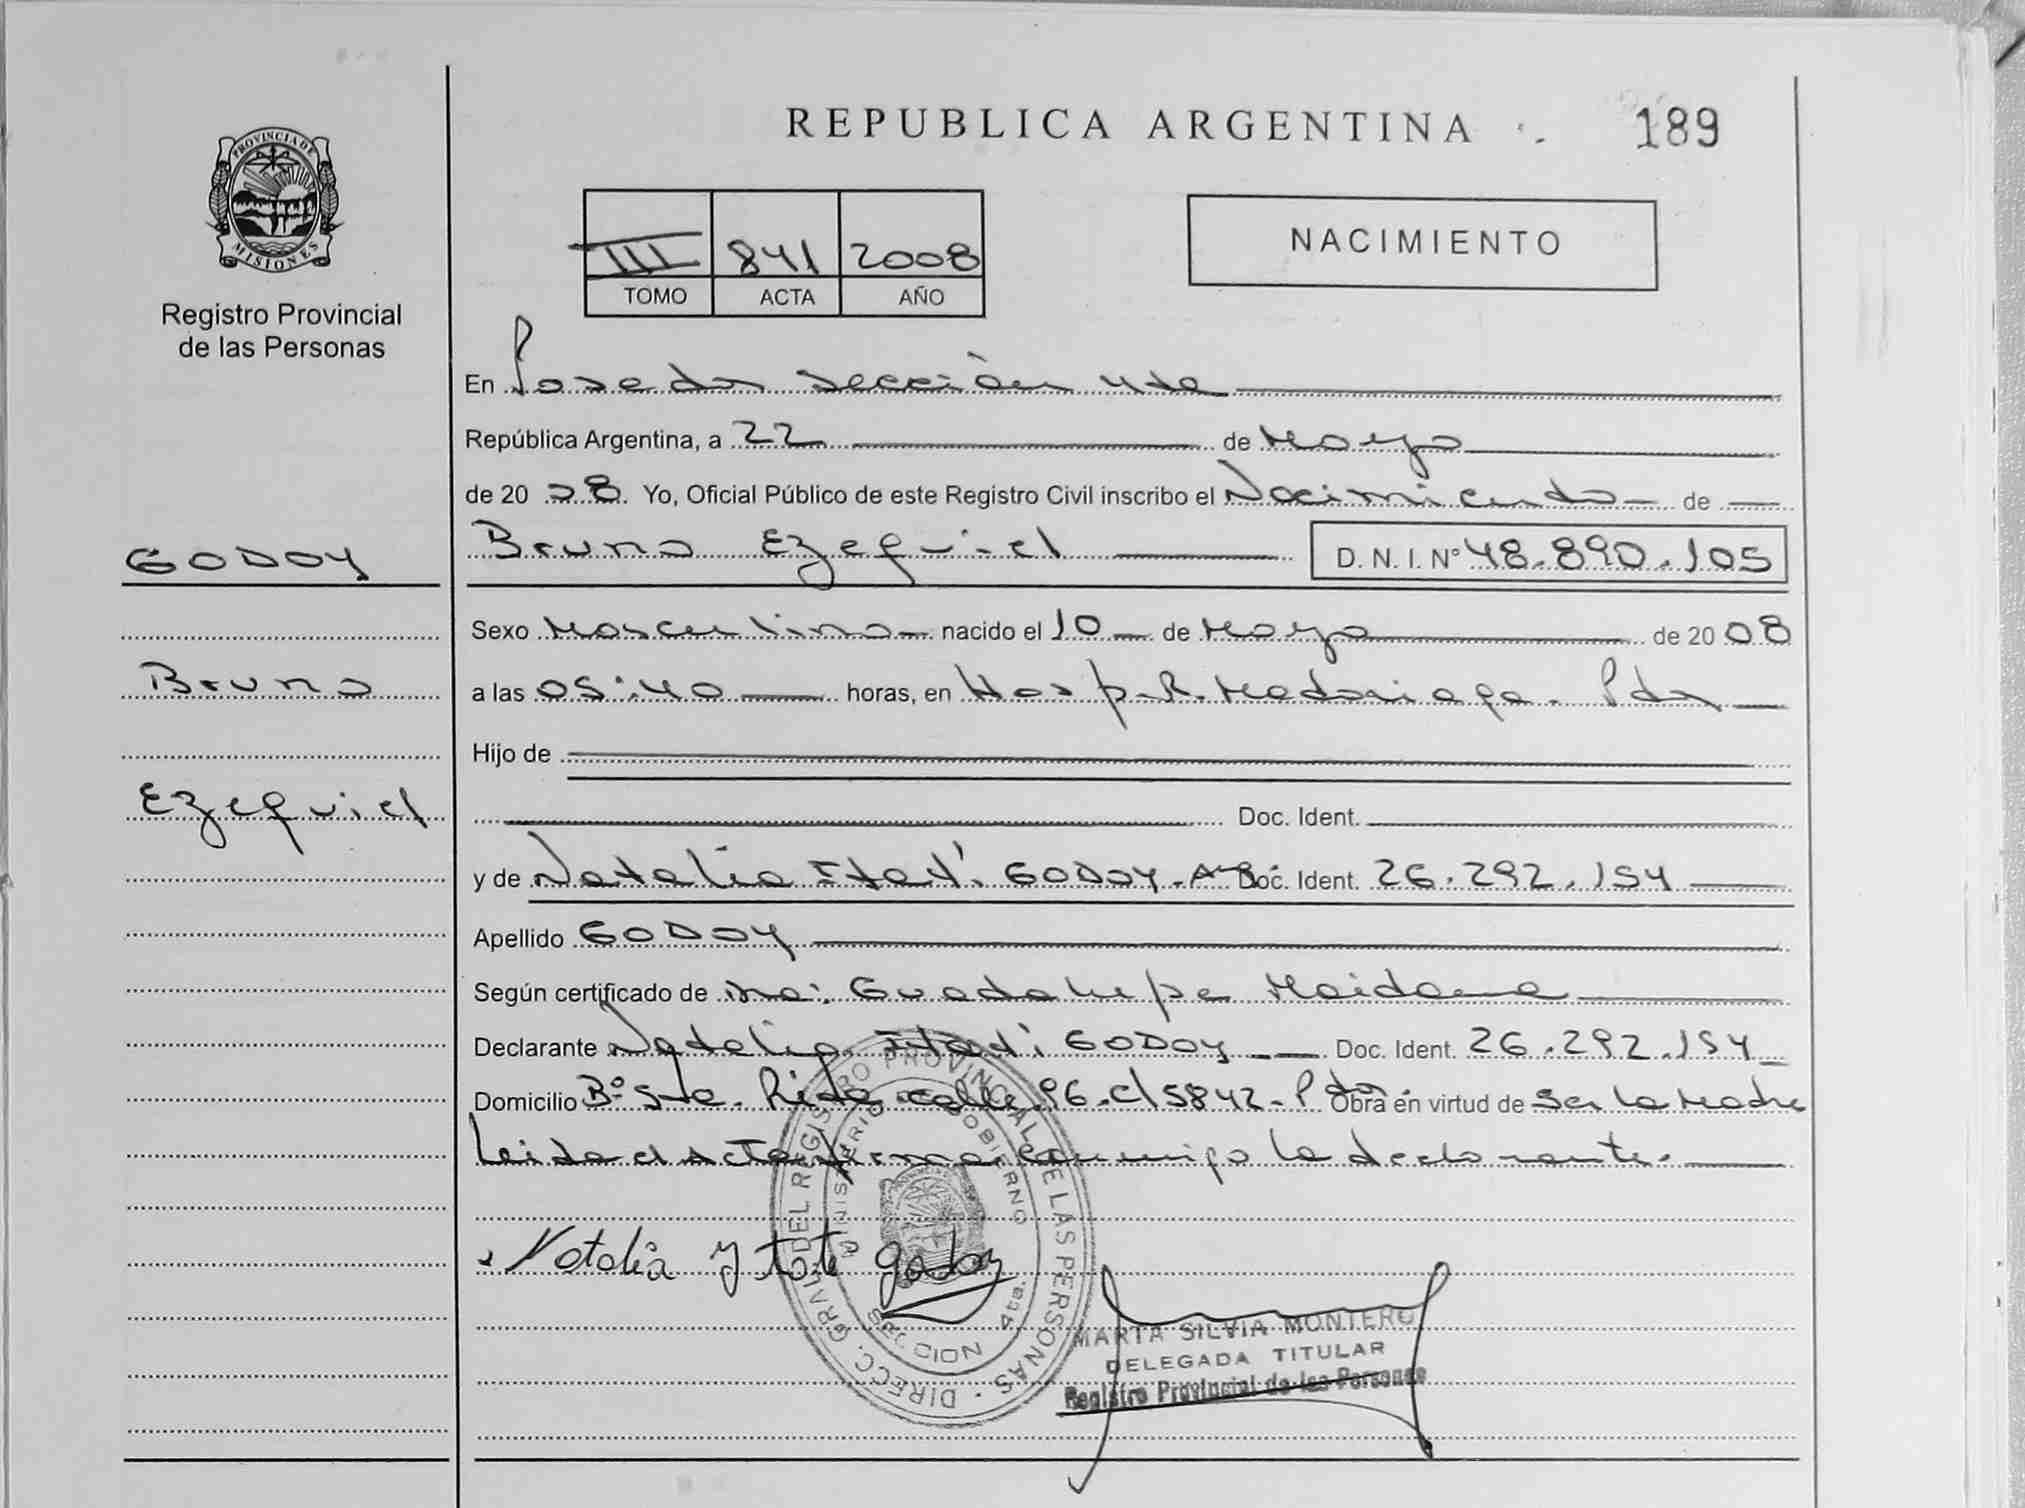 REPUBLICA ARGENTINA
189
PROVINCIA DE MISIONES
Registro Provincial
de las Personas
III 841 2008
TOMO ACTA AÑO
NACIMIENTO
En Posadas sección 4ta
República Argentina, a 22 de Mayo
de 20 08. Yo, Oficial Público de este Registro Civil inscribo el Nacimiento de
GODOY
Bruno Ezequiel D. N. I. N° 48.890.105
Sexo Masculino nacido el 10 de Mayo de 20 08
Bruno
a las 05:40 horas, en Hosp. R. Madariaga - Pdas
Hijo de
Ezequiel
Doc. Ident.
y de Natalia Itatí GODOY - Doc. Ident. 26.292.154
Apellido GODOY
Según certificado de Guadalupe Maidana
Declarante Natalia Itatí GODOY Doc. Ident. 26.292.154
Domicilio B° Sta. Rita calle 96 - c/ 5842 - Pdas Obra en virtud de ser la Madre
Leida el Acta firma conmigo la declarante.
Natalia Ytati Godoy
DIRECC. GRAL. DEL REGISTRO PROVINCIAL DE LAS PERSONAS
MINISTERIO GOBIERNO
SECCION 4ta.
MARTA SILVIA MONTERO
DELEGADA TITULAR
Registro Provincial de las Personas